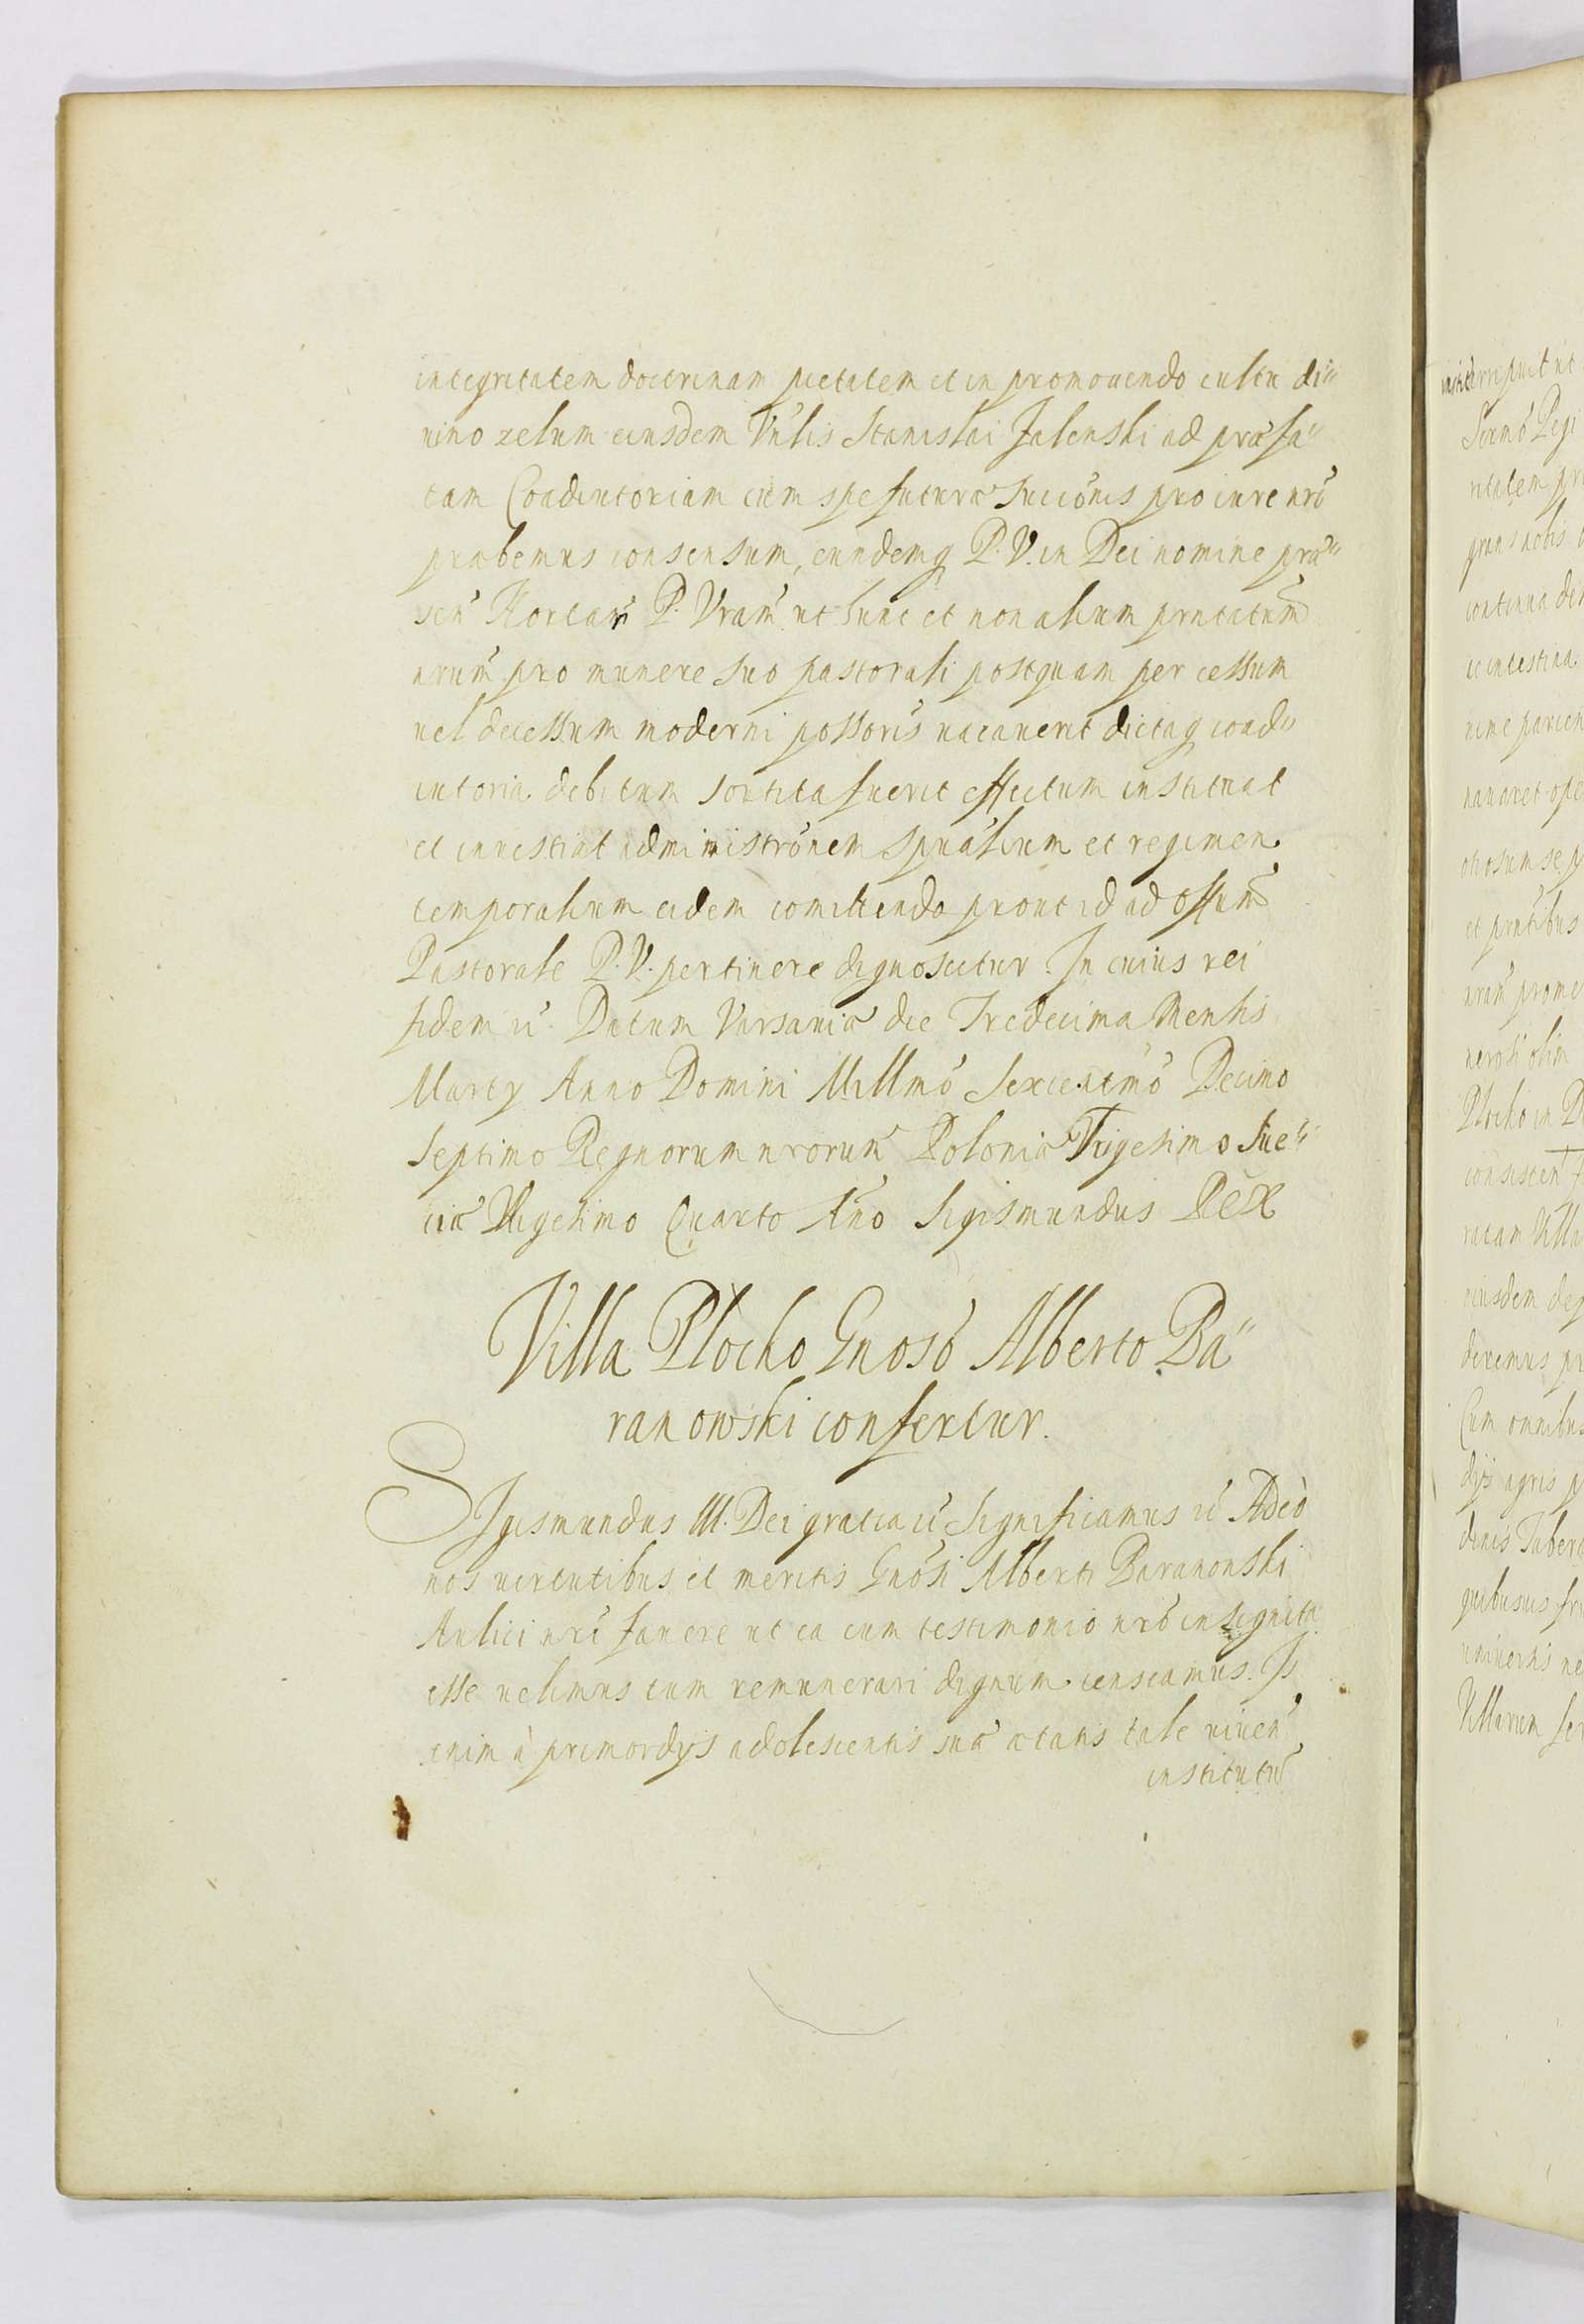 integritatem doctrinam pietatem et in promouendo cultu di"
uino zelum eiusdem Vnlis Stanislai Jalenski ad praefa"
tam Coadiutoriam cum spe futura Succonis pro iure nro
praebemus consensum, eundemq P. V. in Dei nomine prae"
sen Hortam P. Vram ut hunc et non alium pntatum
nrum pro munere suo pastorali postquam per cessum
uel decessum moderni possoris uacauerit dictaq coad"
iutoria debitum sortita fuerit effectum instituat
et inuestiat administronem spualium et regimen
temporalium eidem comittendo prout id ad offum
Pastorale P. V. pertinere dignoscitur. In cuius rei
fidem Datum Varsauia die Tredecima Mensis
Martij Anno Domini Millmo Sexcentmo Decimo
Septimo Regnorum nrorum Polonia Trigesimo Sue"
cia Vigesimo Quarto Ano Sigismundus Rex
Villa Plocho Gnoso Alberto Ba"
ranowski confertur.
SIgismundus III. Dei gratia Significamus Adeò
nos uirtutibus et meritis Gnosi Alberti Baranonski
Aulici nri fauere ut ea cum testimonio nro insignita
esse uelimus tum remunerari dignum censeamus. Is
enim à primordijs adolescentis sua aetatis tale uiuen
institutu
uacam Villa
eiusdem
Cum omnibus
agris
quibusuis
uniuersis
Villarum